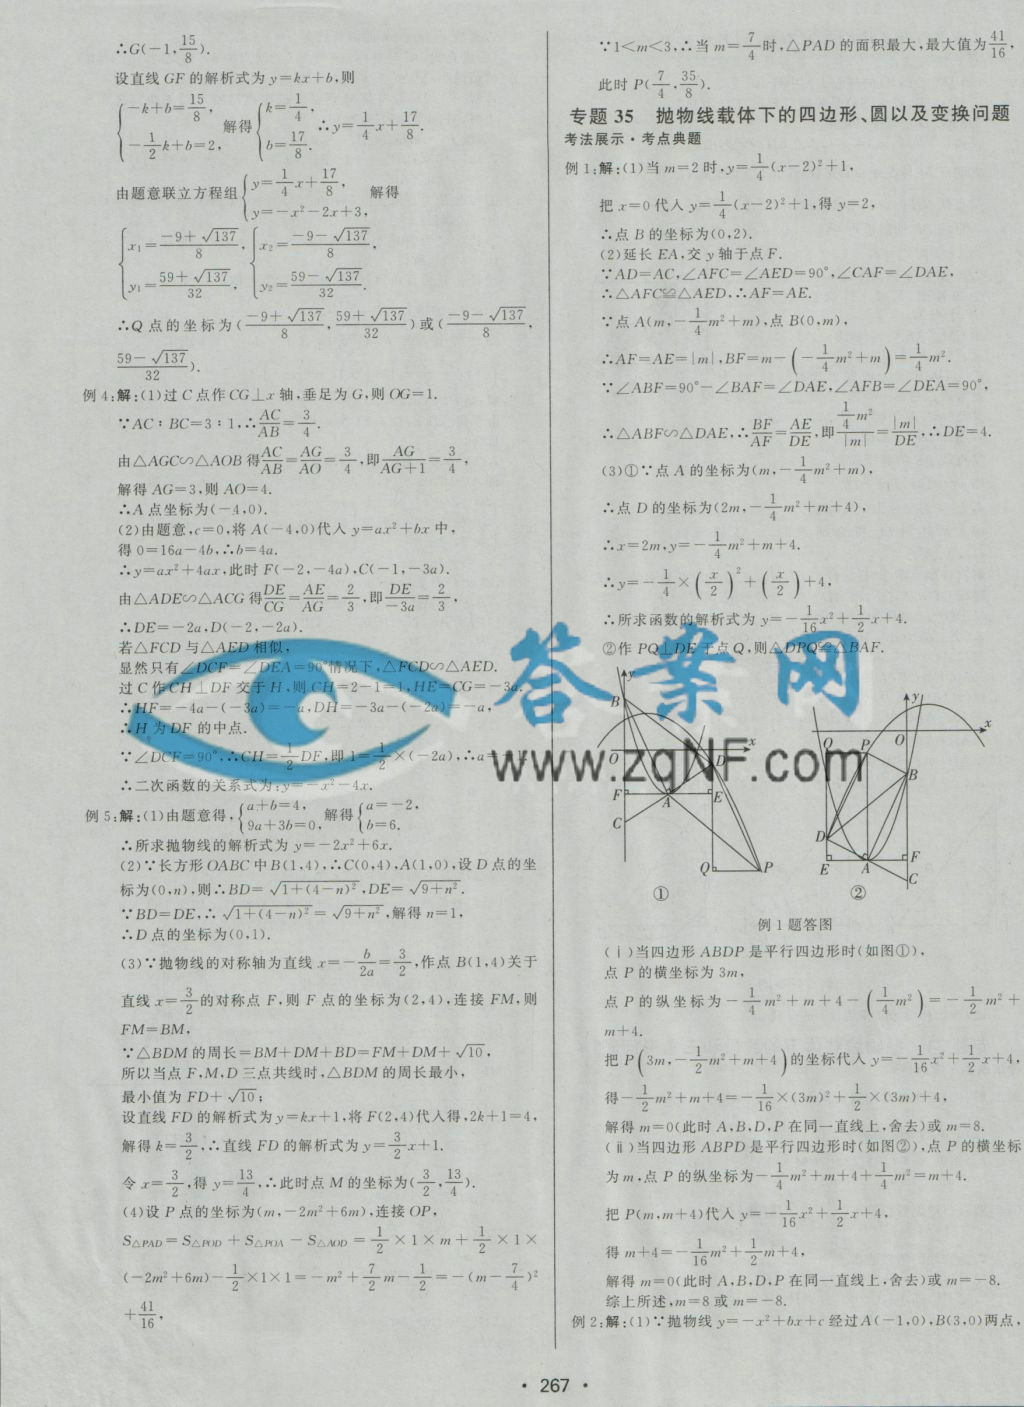 ∴G(-1,15/8).
设直线GF的解析式为y=kx+b,则
{-k+b=15/8, -1/2k+b=2, 解得{k=1/4, b=17/8. ∴y=1/4x+17/8.
由题意联立方程组{y=1/4x+17/8, y=-x²-2x+3, 解得
{x₁=(-9+√137)/8, y₁=(59+√137)/32, {x₂=(-9-√137)/8, y₂=(59-√137)/32.
∴Q点的坐标为((-9+√137)/8,(59+√137)/32)或((-9-√137)/8,
(59-√137)/32).
例4:解:(1)过C点作CG⊥x轴,垂足为G,则OG=1.
∵AC∶BC=3∶1,∴AC/AB=3/4.
由△AGC∽△AOB得AC/AB=AG/AO=3/4,即AG/(AG+1)=3/4,
解得AG=3,则AO=4.
∴A点坐标为(-4,0).
(2)由题意,c=0,将A(-4,0)代入y=ax²+bx中,
得0=16a-4b,∴b=4a.
∴y=ax²+4ax,此时F(-2,-4a),C(-1,-3a).
由△ADE∽△ACG得DE/CG=AE/AG=2/3,即DE/-3a=2/3,
∴DE=-2a,D(-2,-2a).
若△FCD与△AED相似,
显然只有∠DCF=∠DEA=90°情况下,△FCD∽△AED.
过C作CH⊥DF交于H,则CH=2-1=1,HE=CG=-3a.
∴HF=-4a-(-3a)=-a,DH=-3a-(-2a)=-a,
∴H为DF的中点.
∵∠DCF=90°,∴CH=1/2DF,即1=1/2×(-2a),∴a=-1,
∴二次函数的关系式为:y=-x²-4x.
例5:解:(1)由题意得,{a+b=4, 9a+3b=0, 解得{a=-2, b=6.
∴所求抛物线的解析式为y=-2x²+6x.
(2)∵长方形OABC中B(1,4),∴C(0,4),A(1,0),设D点的坐
标为(0,n),则∴BD=√1+(4-n)²,DE=√9+n².
∵BD=DE,∴√1+(4-n)²=√9+n²,解得n=1,
∴D点的坐标为(0,1).
(3)∵抛物线的对称轴为直线x=-b/2a=3/2,作点B(1,4)关于
直线x=3/2的对称点F,则F点的坐标为(2,4),连接FM,则
FM=BM,
∵△BDM的周长=BM+DM+BD=FM+DM+√10,
所以当点F,M,D三点共线时,△BDM的周长最小,
最小值为FD+√10;
设直线FD的解析式为y=kx+1,将F(2,4)代入得,2k+1=4,
解得k=3/2,∴直线FD的解析式为y=3/2x+1.
令x=3/2,得y=13/4,∴此时点M的坐标为(3/2,13/4).
(4)设P点的坐标为(m,-2m²+6m),连接OP,
S△PAD=S△POD+S△POA-S△AOD=1/2×1×m+1/2×1×
(-2m²+6m)-1/2×1×1=-m²+7/2m-1/2=-(m-7/4)²
+41/16,
∵1<m<3,∴当m=7/4时,△PAD的面积最大,最大值为41/16,
此时P(7/4,35/8).
专题35 抛物线载体下的四边形、圆以及变换问题
考法展示·考点典题
例1:解:(1)当m=2时,y=1/4(x-2)²+1,
把x=0代入y=1/4(x-2)²+1,得y=2,
∴点B的坐标为(0,2).
(2)延长EA,交y轴于点F.
∵AD=AC,∠AFC=∠AED=90°,∠CAF=∠DAE,
∴△AFC≌△AED,∴AF=AE.
∵点A(m,-1/4m²+m),点B(0,m),
∴AF=AE=|m|,BF=m-(-1/4m²+m)=1/4m².
∵∠ABF=90°-∠BAF=∠DAE,∠AFB=∠DEA=90°,
∴△ABF∽△DAE,∴BF/AF=AE/DE,即1/4m²/|m|=|m|/DE,∴DE=4.
(3)①∵点A的坐标为(m,-1/4m²+m),
∴点D的坐标为(2m,-1/4m²+m+4),
∴x=2m,y=-1/4m²+m+4.
∴y=-1/4×(x/2)²+(x/2)+4,
∴所求函数的解析式为y=-1/16x²+1/2x+4.
②作PQ⊥DE于点Q,则△DPQ≌△BAF.
答案网
www.zqNF.com
y B O x D F A E C Q P
①
y Q P O x B D E A F C
②
例1题答图
(ⅰ)当四边形ABDP是平行四边形时(如图①),
点P的横坐标为3m,
点P的纵坐标为-1/4m²+m+4-(1/4m²)=-1/2m²+
m+4.
把P(3m,-1/2m²+m+4)的坐标代入y=-1/16x²+1/2x+4,
得-1/2m²+m+4=-1/16×(3m)²+1/2×(3m)+4,
解得m=0(此时A,B,D,P在同一直线上,舍去)或m=8.
(ⅱ)当四边形ABPD是平行四边形时(如图②),点P的横坐标
为m,点P的纵坐标为-1/4m²+m+4+1/4m²=m+4.
把P(m,m+4)代入y=-1/16x²+1/2x+4,
得m+4=-1/16m²+1/2m+4,
解得m=0(此时A,B,D,P在同一直线上,舍去)或m=-8.
综上所述,m=8或m=-8.
例2:解:(1)∵抛物线y=-x²+bx+c经过A(-1,0),B(3,0)两点,
·267·